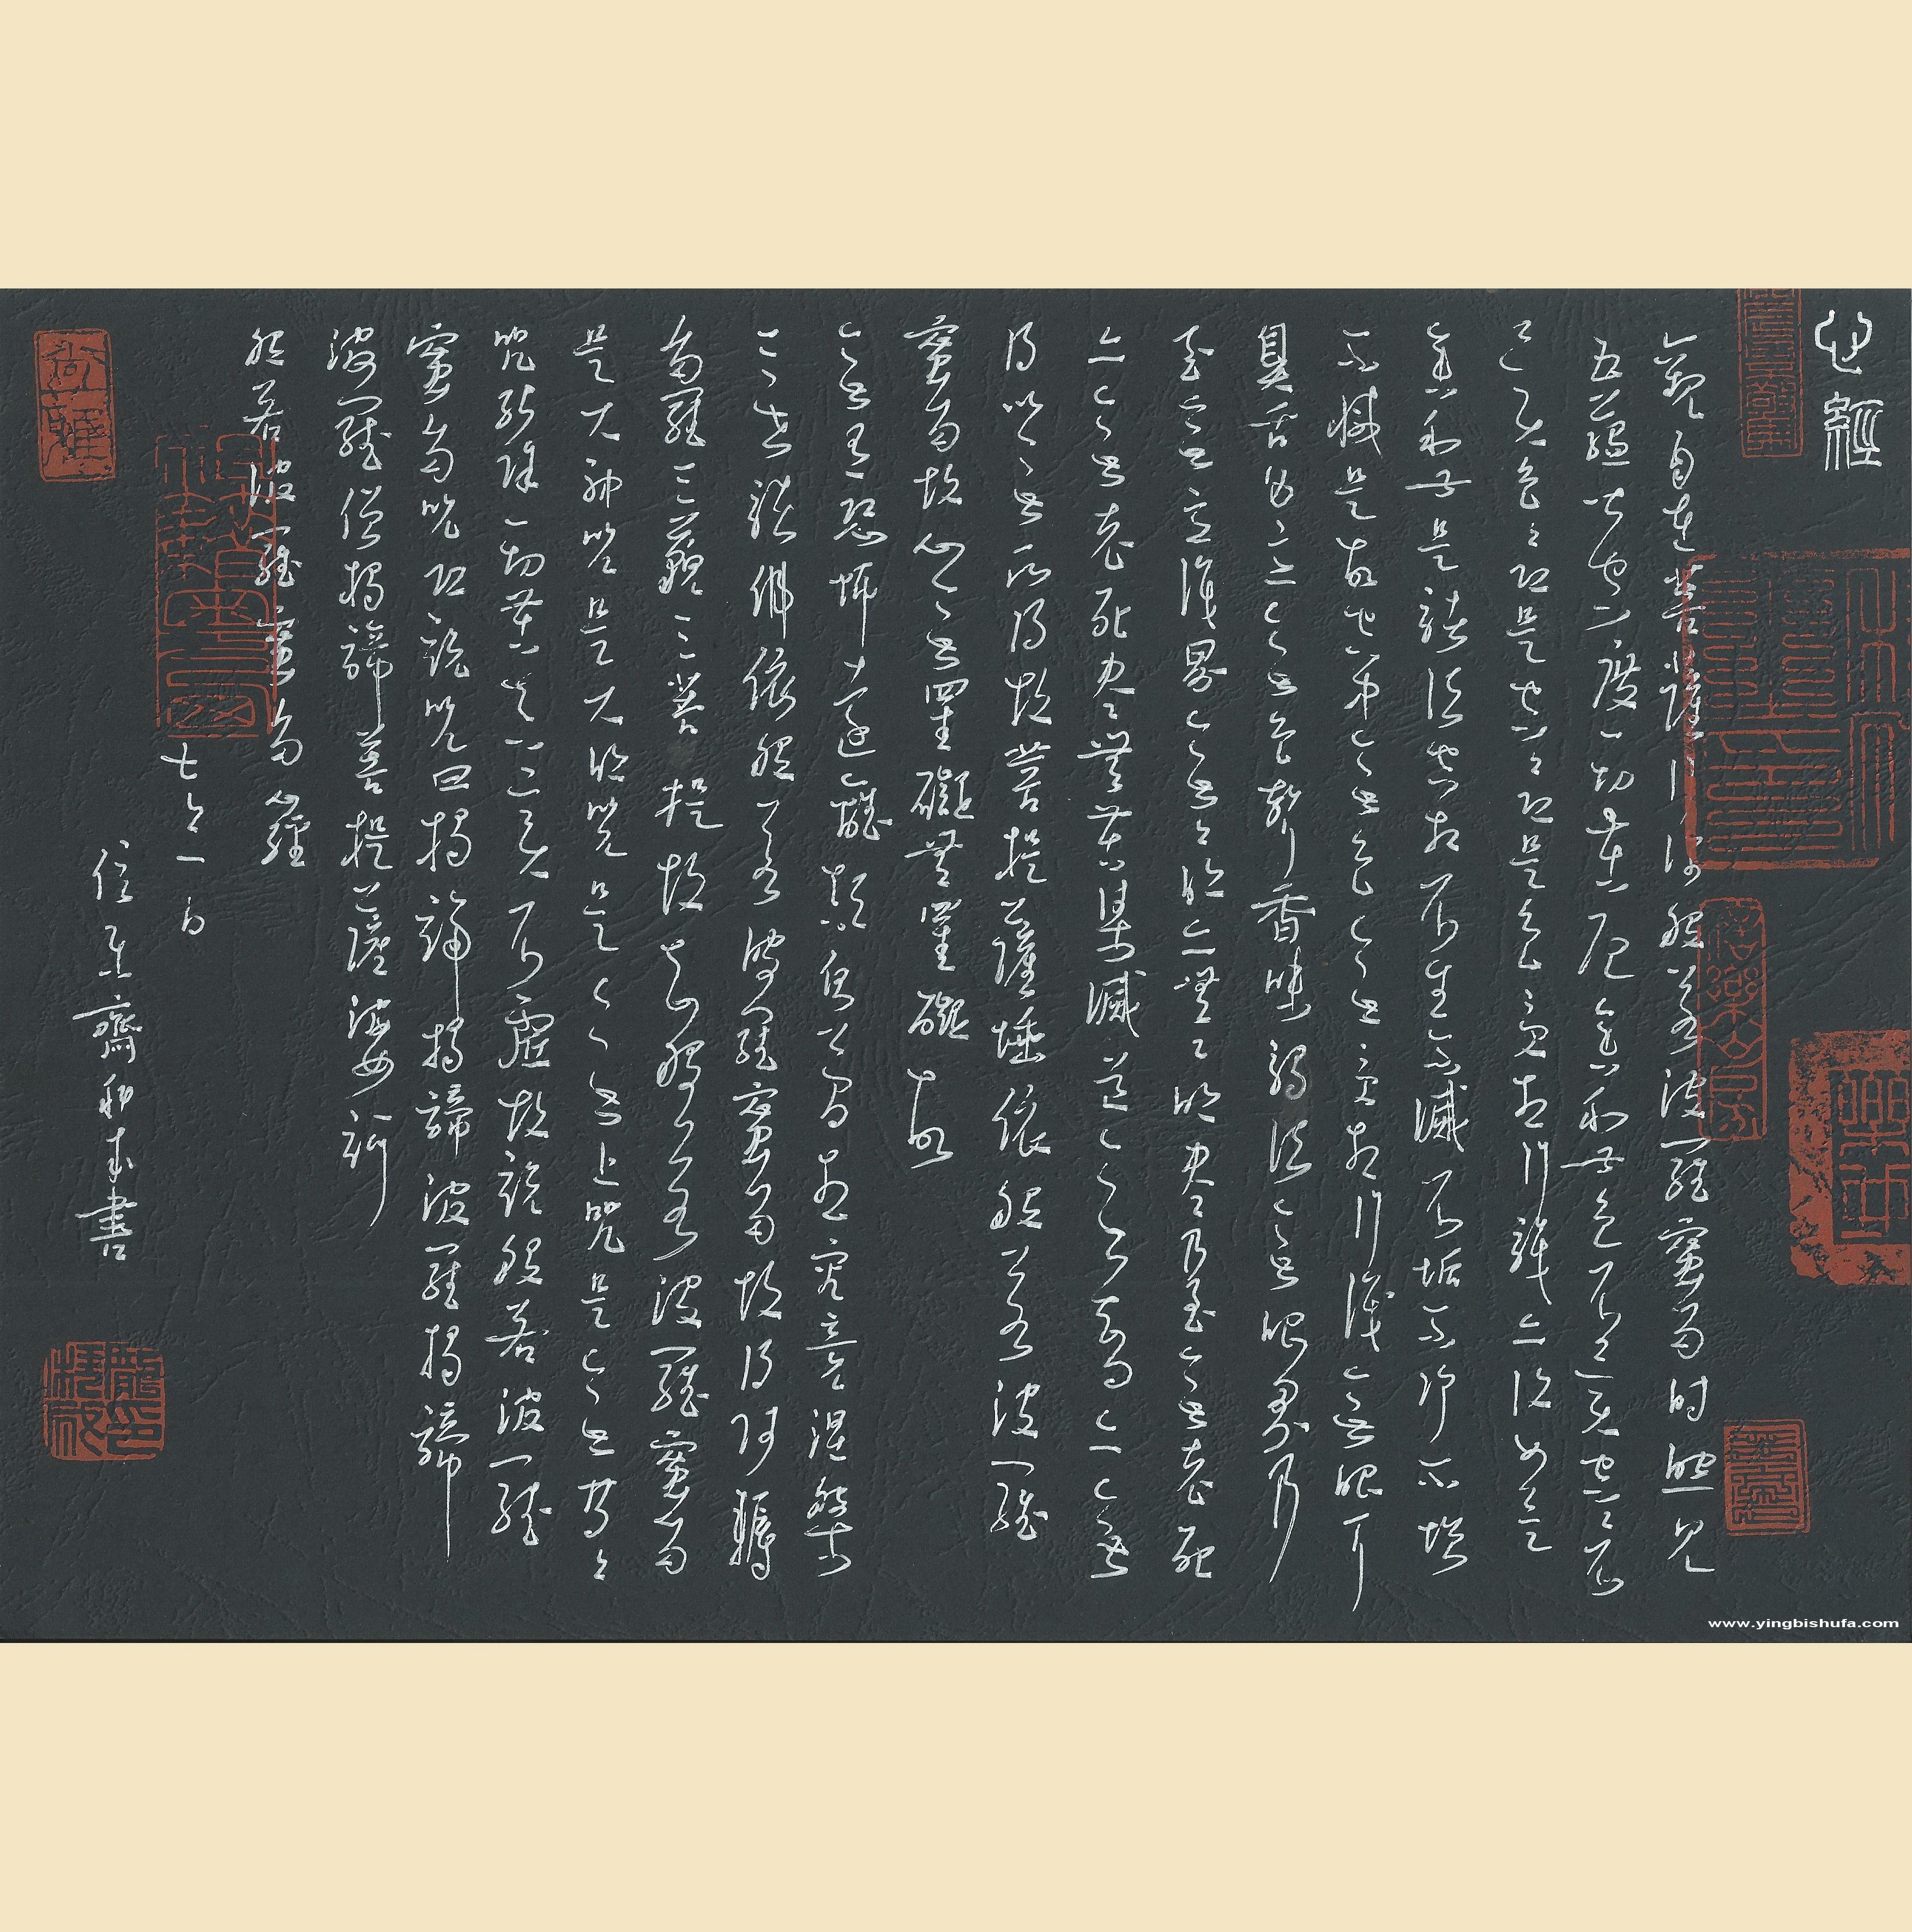 心經
觀自在菩薩行深般若波羅蜜多時照見
五蘊皆空度一切苦厄舍利子色不異空空不
異色色即是空空即是色受想行識亦復如是
舍利子是諸法空相不生不滅不垢不淨不增
不減是故空中無色無受想行識無眼耳
鼻舌身意無色聲香味觸法無眼界乃
至無意識界無無明亦無無明盡乃至無老死
亦無老死盡無苦集滅道無智亦無
得以無所得故菩提薩埵依般若波羅
蜜多故心無罣礙無罣礙故
無有恐怖遠離顛倒夢想究竟涅槃
三世諸佛依般若波羅蜜多故得阿耨
多羅三藐三菩提故知般若波羅蜜多
是大神咒是大明咒是無上咒是無等等
咒能除一切苦真實不虛故說般若波羅
蜜多咒即說咒曰揭諦揭諦波羅揭諦
波羅僧揭諦菩提薩婆訶
般若波羅蜜多心經
書
www.yingbishufa.com